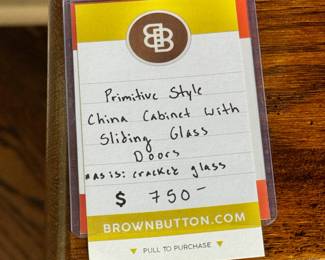 BB
Primitive Style
China Cabinet with
Sliding Glass
Doors
*as is: cracket glass
$ 750-
BROWNBUTTON.COM
▼ PULL TO PURCHASE ▼